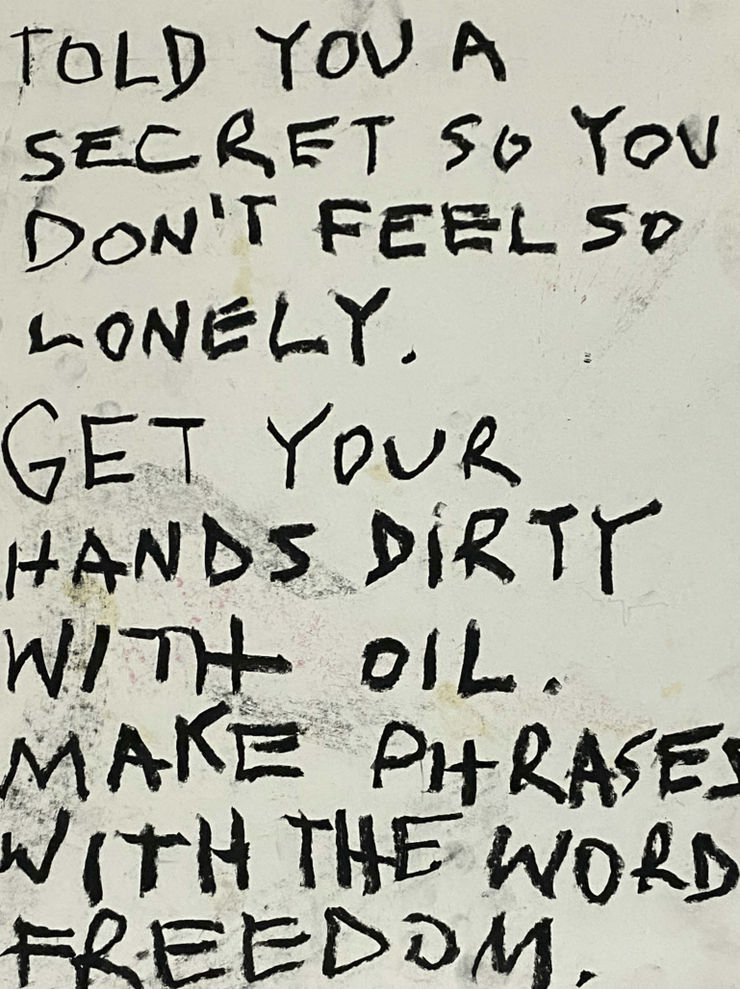 TOLD YOU A
SECRET SO YOU
DON'T FEEL SO
LONELY.
GET YOUR
HANDS DIRTY
WITH OIL.
MAKE PHRASES
WITH THE WORD
FREEDOM.